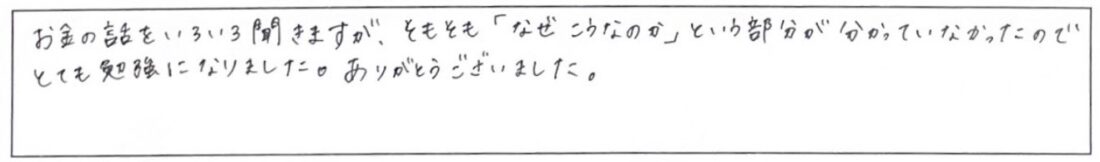 お金の話をいろいろ聞きますが、そもそも「なぜこうなのか」という部分が分かっていなかったので
とても勉強になりました。ありがとうございました。